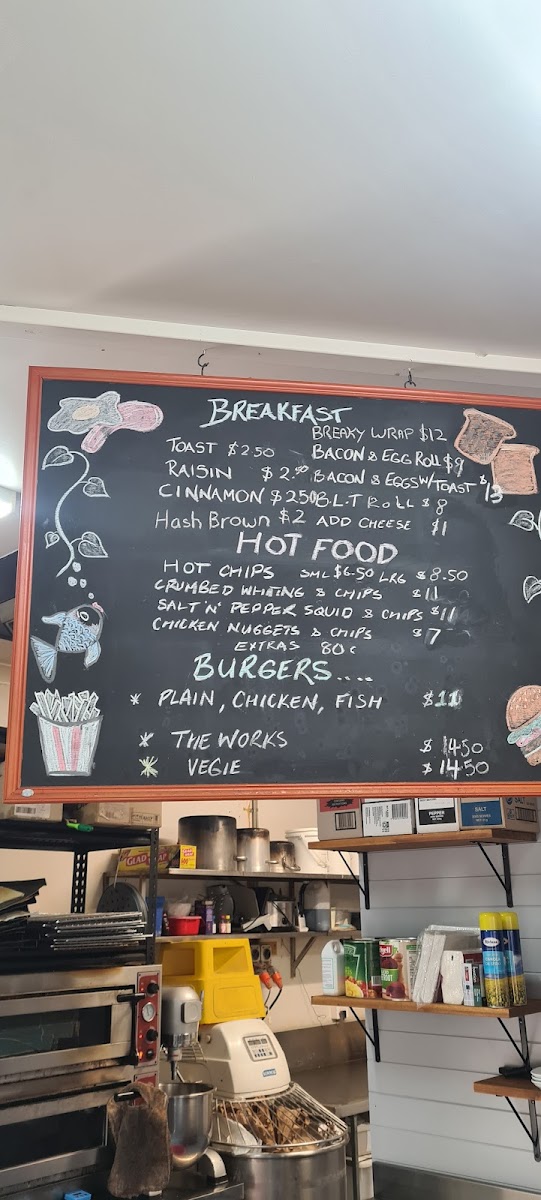 BREAKFAST
BREAXY WRAP $12
TOAST $250
BACON & EGG ROLL $9
RAISIN $2.50
BACON & EGGS W/TOAST $13
CINNAMON $250
B.L.T ROLL $8
Hash Brown $2
ADD CHEESE $1
HOT FOOD
HOT CHIPS SML $6.50 LRG $8.50
CRUMBED WHITING & CHIPS $11
SALT 'N' PEPPER SQUID & CHIPS $11
CHICKEN NUGGETS & CHIPS $7
EXTRAS 80c
BURGERS....
* PLAIN, CHICKEN, FISH $11
* THE WORKS $1450
* VEGIE $14.50
PEPPER
SALT
GLAD WRAP